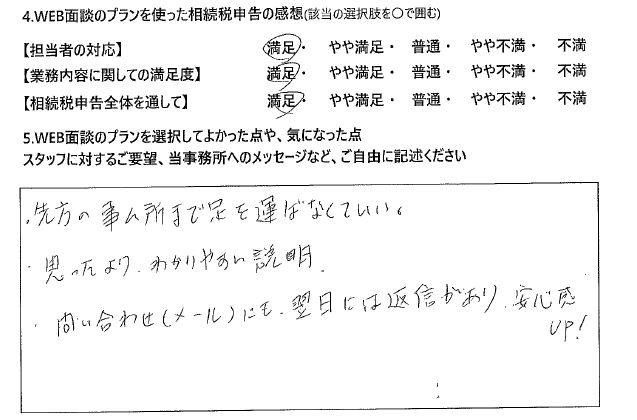 4.WEB面談のプランを使った相続税申告の感想(該当の選択肢を〇で囲む)
【担当者の対応】 満足・ やや満足・ 普通・ やや不満・ 不満
【業務内容に関しての満足度】 満足・ やや満足・ 普通・ やや不満・ 不満
【相続税申告全体を通して】 満足・ やや満足・ 普通・ やや不満・ 不満
5.WEB面談のプランを選択してよかった点や、気になった点
スタッフに対するご要望、当事務所へのメッセージなど、ご自由に記述ください
・先方の事ム所まで足を運ばなくていい。
・思ったより、わかりやすい説明。
・問い合わせ(メール)にも、翌日には返信があり、安心感
UP!